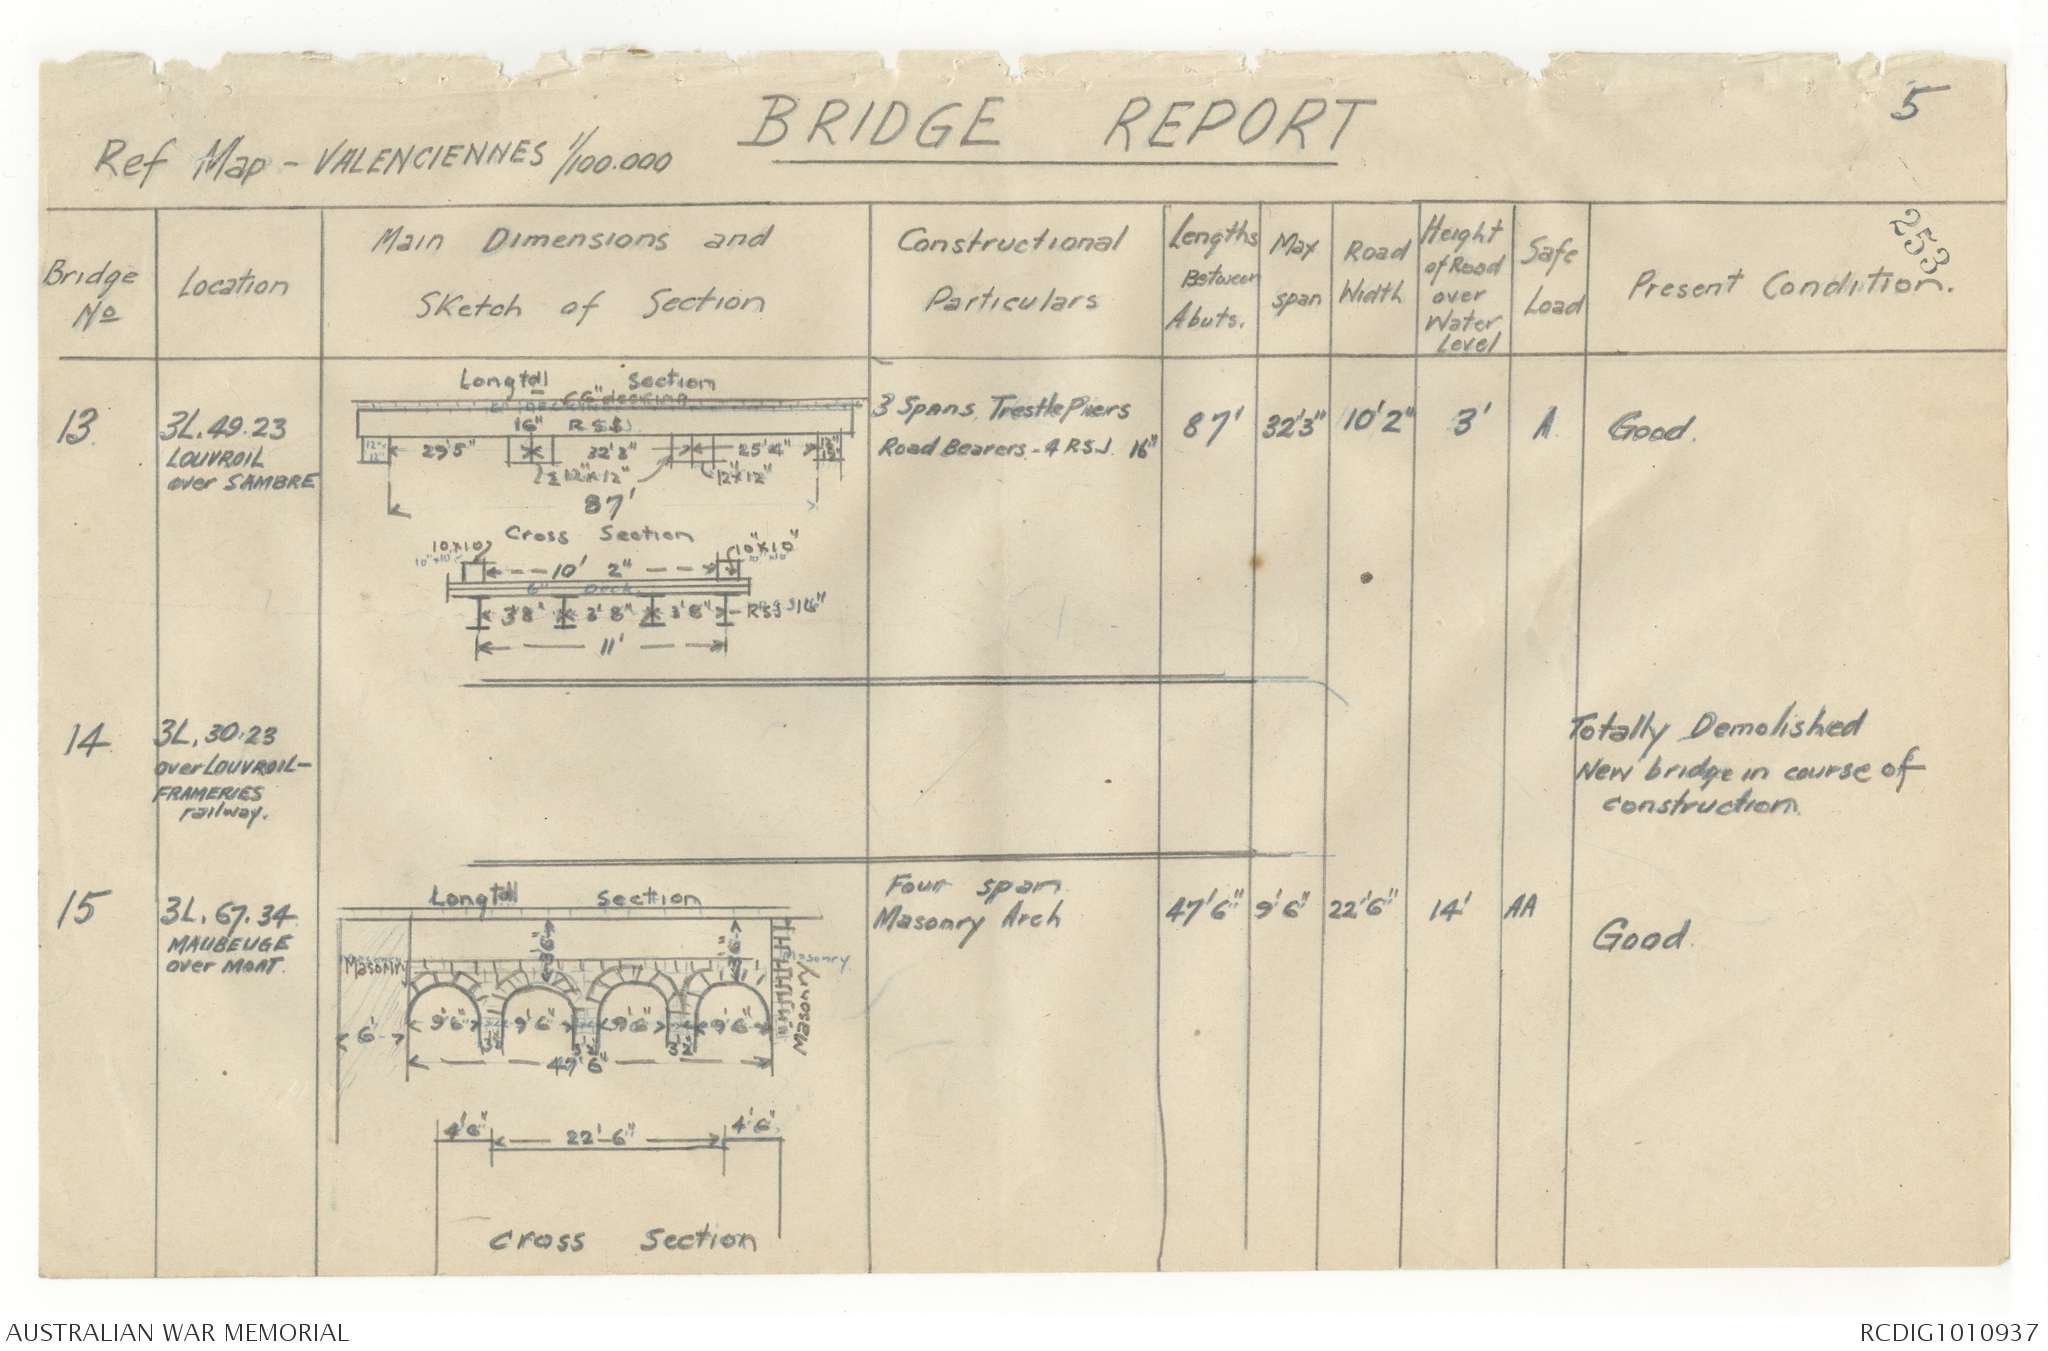 5
BRIDGE REPORT
Ref Map - VALENCIENNES 1/100.000
253
Bridge
No
Location
Main Dimensions and
Sketch of Section
Constructional
Particulars
Lengths
Between
Abuts.
Max
span
Road
Width
Height
of Road
over
Water
Level
Safe
Load
Present Condition.
13.
3L.49.23
LOUVROIL
over SAMBRE
Longtdl Section
decking
16" RSJ
29'5" 32'3" 25'4"
12"x12" 12"x12"
87'
Cross Section
10"x10" 10"x10"
10' 2"
6" Deck
3'8" 3'8" 3'8" RSJ 16"
11'
3 Spans. Trestle Piers
Road Bearers - 4 RSJ. 16"
87'
32'3"
10'2"
3'
A
Good.
14
3L.30.23
over LOUVROIL-
FRAMERIES
railway.
Totally Demolished
New bridge in course of
construction.
15
3L.67.34
MAUBEUGE
over MOAT.
Longtdl Section
3'6" 3'6"
Masonry Masonry
Masonry
6' 9'6" 9'6" 9'6" 9'6"
47'6"
4'6" 22'-6" 4'6"
Cross Section
Four span
Masonry Arch
47'6"
9'6"
22'6"
14'
AA
Good.
AUSTRALIAN WAR MEMORIAL
RCDIG1010937